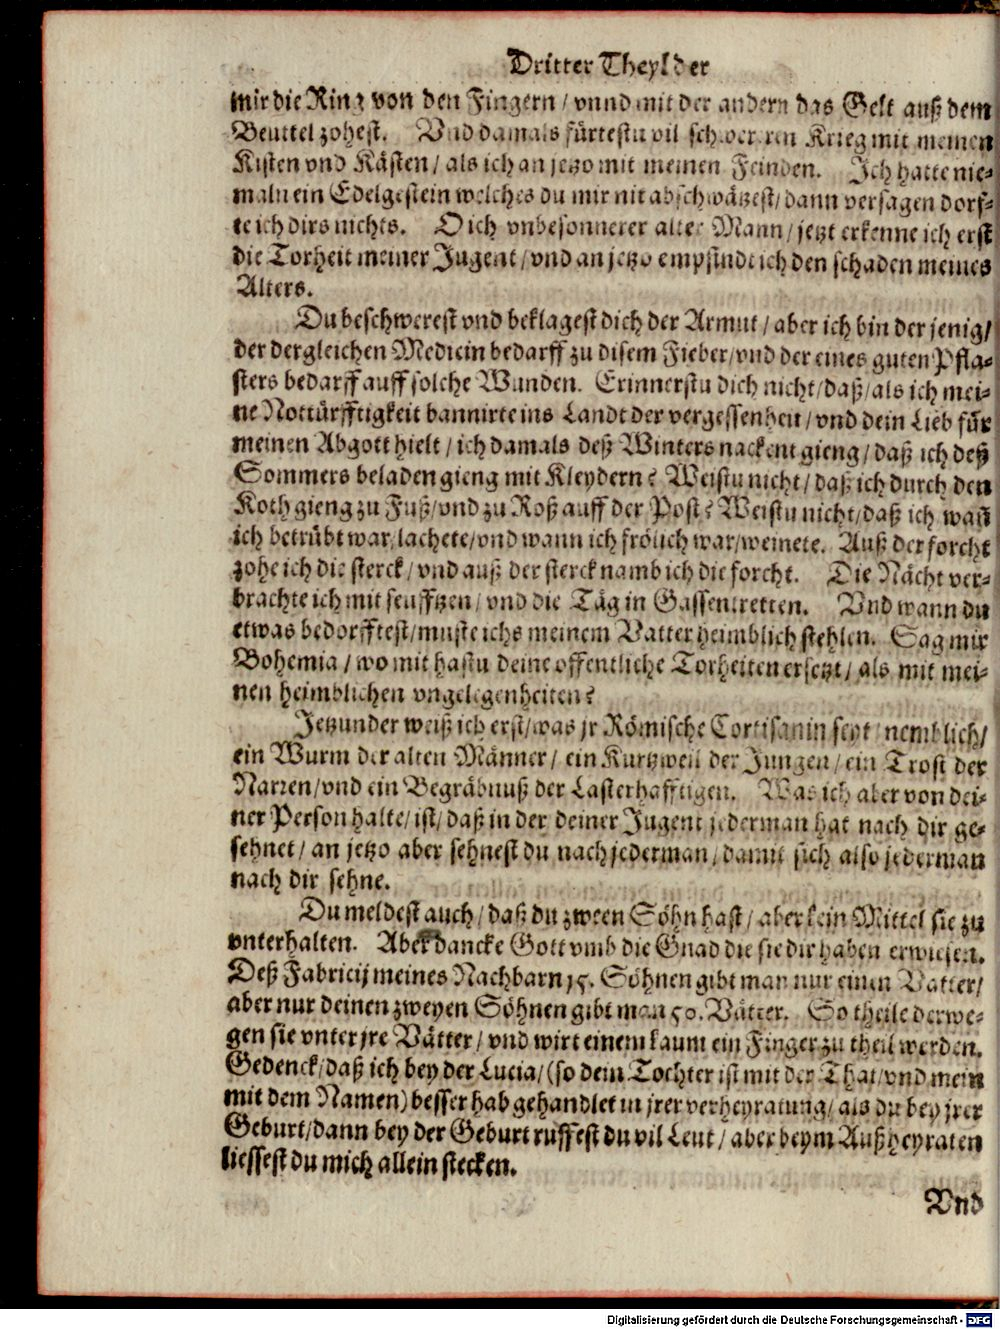 Dritter Theyl der
mir die Ring von den Fingern / vnnd mit der andern das Gelt auß dem
Beuttel zohest. Vnd damals fürtestu vil schwereren Krieg mit meinen
Kisten vnd Kästen / als ich an jetzo mit meinen Feinden. Ich hatte nie-
maln ein Edelgestein welches du mir nit abschwätzest / dann versagen dorf-
te ich dirs nichts. O ich vnbesonnerer alter Mann / jetzt erkenne ich erst
die Torheit meiner Jugent / vnd an jetzo empfinde ich den schaden meines
Alters.
Du beschwerest vnd beklagest dich der Armut / aber ich bin der jenig /
der dergleichen Medicin bedarff zu disem Fieber / vnd der eines guten Pfla-
sters bedarff auff solche Wunden. Erinnerstu dich nicht / daß / als ich mei-
ne Nottürfftigkeit bannirte ins Landt der vergessenheit / vnd dein Lieb für
meinen Abgott hielt / ich damals deß Winters nackent gieng / daß ich deß
Sommers beladen gieng mit Kleydern? Weistu nicht / daß ich durch den
Koth gieng zu Fuß / vnd zu Roß auff der Post? Weistu nicht / daß ich wañ
ich betrübt war / lachete / vnd wann ich frölich war / weinete. Auß der forcht
zohe ich die sterck / vnd auß der sterck namb ich die forcht. Die Nächt ver-
brachte ich mit seufftzen / vnd die Täg in Gassentretten. Vnd wann du
etwas bedorfftest / muste ichs meinem Vatter heimblich stehlen. Sag mir
Bohemia / wo mit hastu deine offentliche Torheiten ersetzt / als mit mei-
nen heimblichen vngelegenheiten?
Jetzunder weiß ich erst / was jr Römische Cortisanin seyt / nemblich /
ein Wurm der alten Männer / ein Kurtzweil der Jungen / ein Trost der
Narren / vnd ein Begräbnuß der Lasterhafftigen. Was ich aber von dei-
ner Person halte / ist / daß in der deiner Jugent jederman hat nach dir ge-
sehnet / an jetzo aber sehnest du nach jederman / damit sich also jederman
nach dir sehne.
Du meldest auch / daß du zween Söhn hast / aber kein Mittel sie zu
vnterhalten. Aber dancke Gott vmb die Gnad die sie dir haben erwiesen.
Deß Fabricij meines Nachbarn 15. Söhnen gibt man nur einen Vatter /
aber nur deinen zweyen Söhnen gibt man 50. Vätter. So theile derwe-
gen sie vnter jre Vätter / vnd wirt einem kaum ein Finger zu theil werden.
Gedenck / daß ich bey der Lucia / (so dem Tochter ist mit der That / vnd mein
mit dem Namen) besser hab gehandlet in jrer verheyratung / als du bey jrer
Geburt / dann bey der Geburt ruffest du vil Leut / aber beym Außheyraten
liessest du mich allein stecken.
Vnd
Digitalisierung gefördert durch die Deutsche Forschungsgemeinschaft - DFG